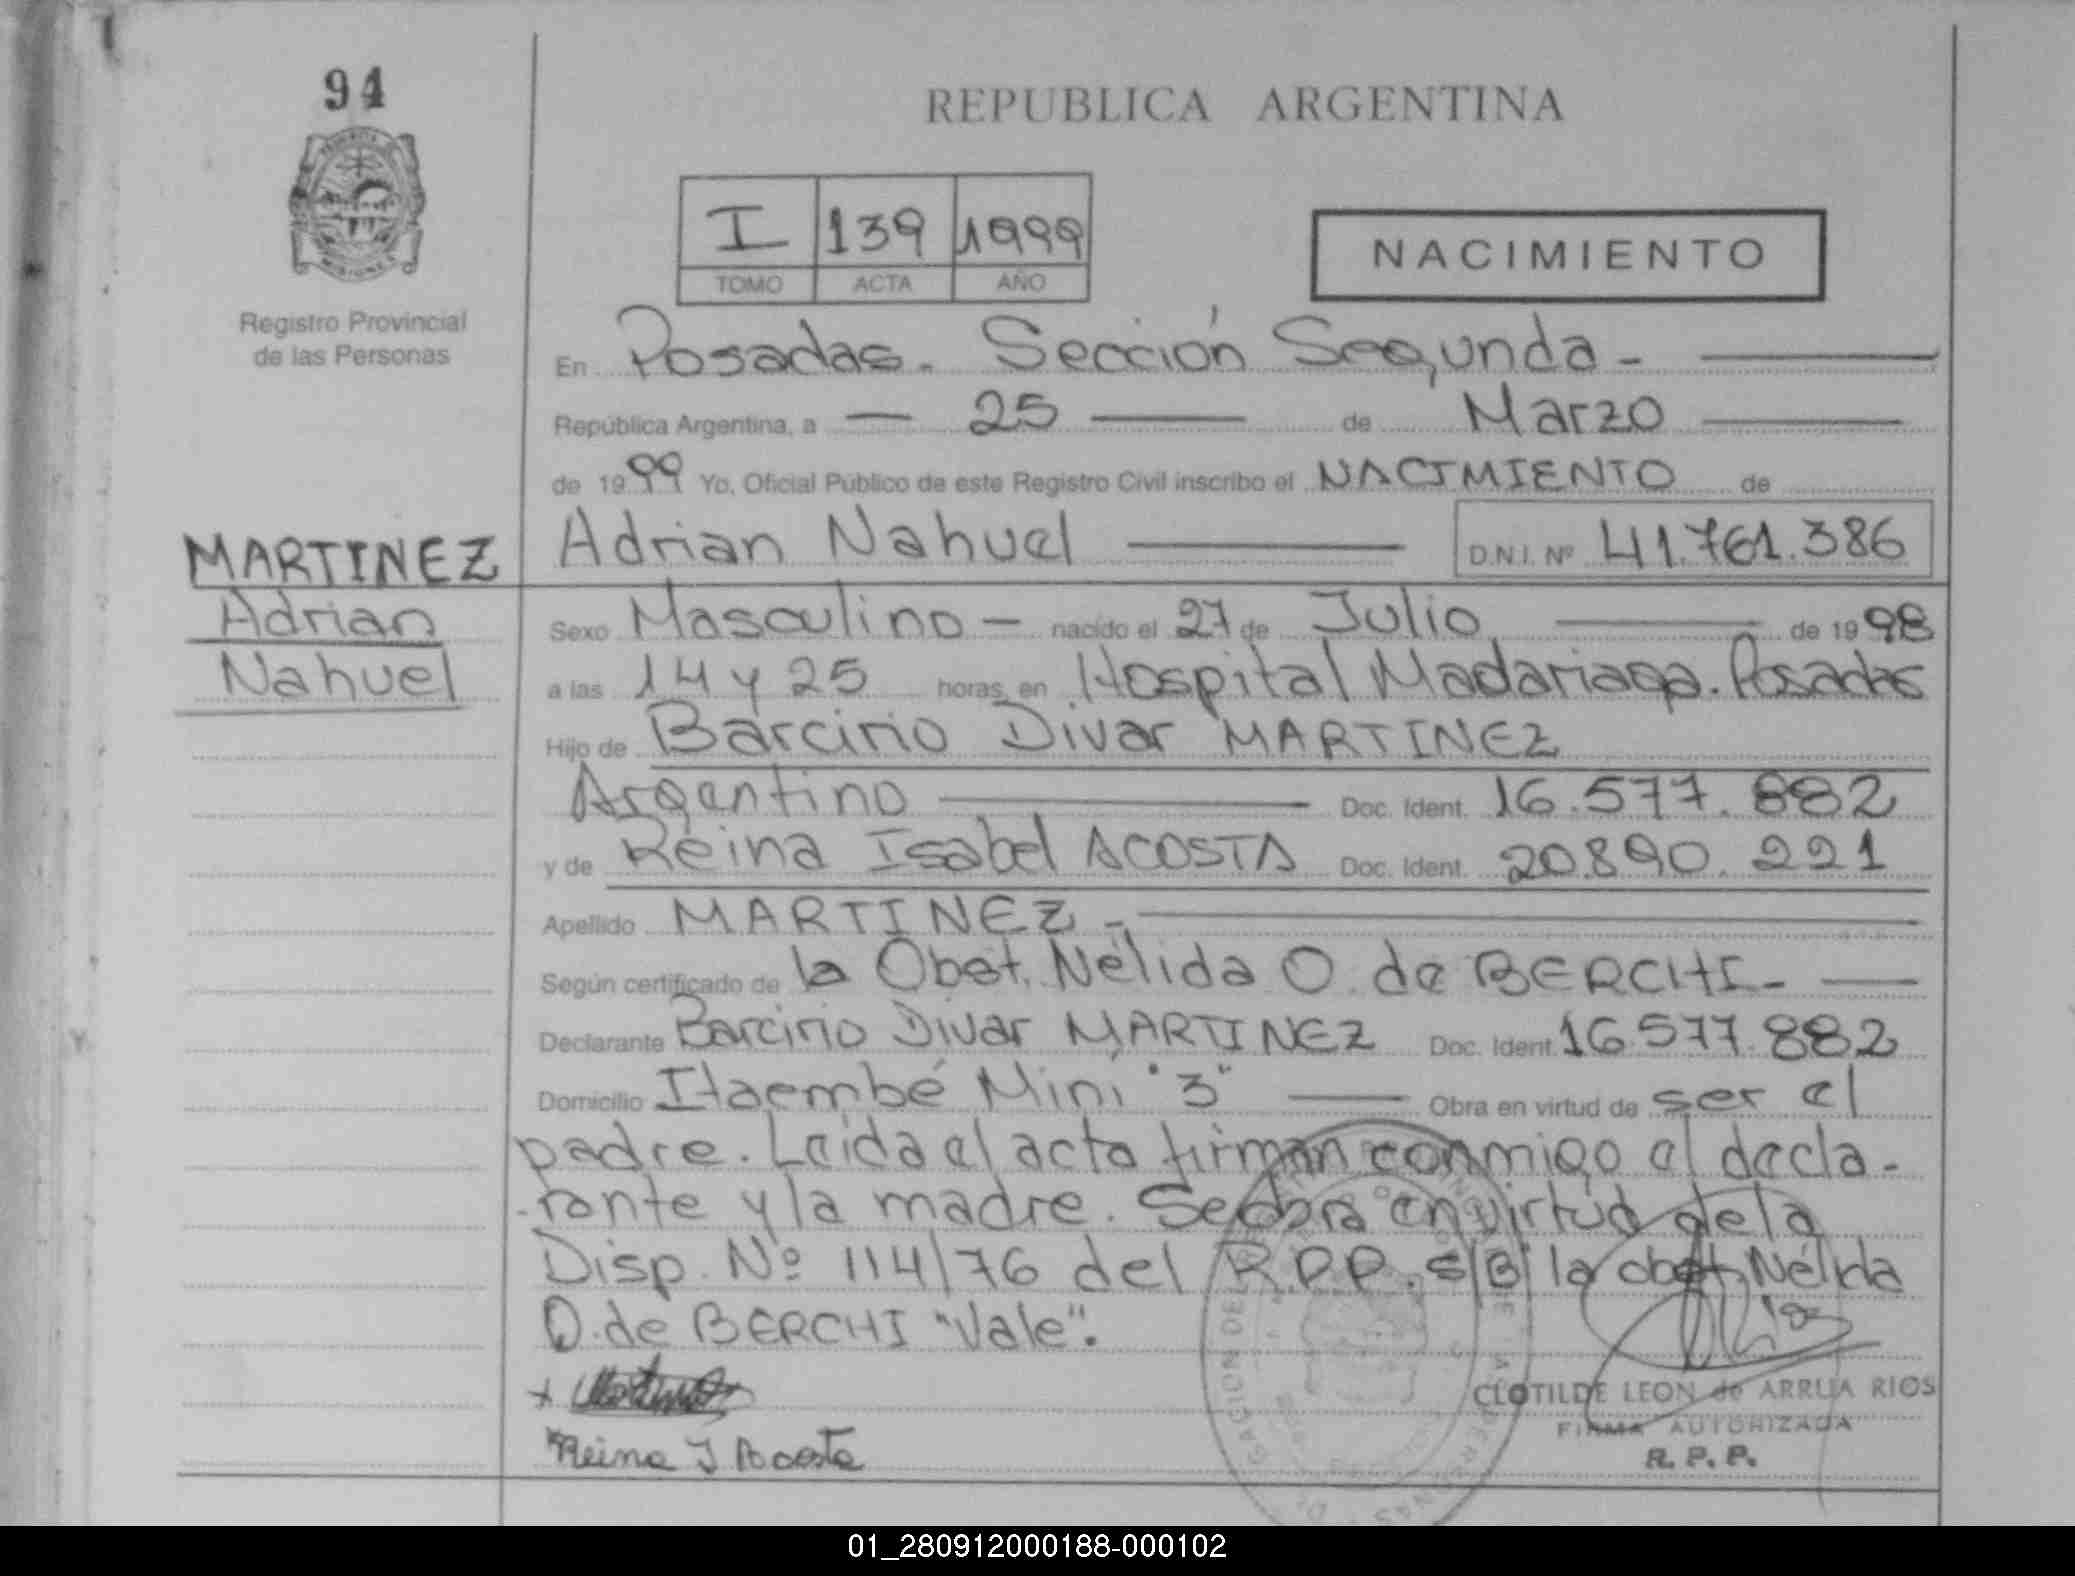 94
REPUBLICA ARGENTINA
I 139 1999
TOMO ACTA AÑO
NACIMIENTO
Registro Provincial
de las Personas
En Posadas. Sección Segunda -
República Argentina, a — 25 — de Marzo
de 1999 Yo, Oficial Público de este Registro Civil inscribo el NACIMIENTO de
MARTINEZ Adrian Nahuel — D.N.I. Nº 41.761.386
Adrian
Nahuel
Sexo Masculino — nacido el 27 de Julio — de 1998
a las 14 y 25 horas, en Hospital Madariaga. Posadas
Hijo de Barcirio Divar MARTINEZ
Argentino — Doc. Ident. 16.577.882
y de Reina Isabel ACOSTA Doc. Ident. 20.890.221
Apellido MARTINEZ -
Según certificado de la Obst. Nélida O. de BERCHI -
Declarante Barcirio Divar MARTINEZ Doc. Ident. 16.577.882
Domicilio Itaembé Miní "3" — Obra en virtud de ser el
padre. Leida el acta firman conmigo el decla-
-rante y la madre. Se obra en virtud de la
Disp. Nº 114/76 del R.P.P. S/B la obst. Nélida
O. de BERCHI "Vale".
Reina I Acosta
CLOTILDE LEON de ARRUA RIOS
FIRMA AUTORIZADA
R. P. P.
01_280912000188-000102